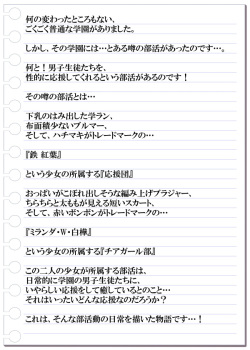 何の変わったところもない、
ごくごく普通な学園がありました。
しかし、その学園には…とある噂の部活があったのです…。
何と！男子生徒たちを、
性的に応援してくれるという部活があるのです！
その噂の部活とは…
下乳のはみ出した学ラン、
布面積少ないブルマー、
そして、ハチマキがトレードマークの…
『鉄 紅葉』
という少女の所属する『応援団』
おっぱいがこぼれ出しそうな編み上げブラジャー、
ちらちらと太ももが見える短いスカート、
そして、赤いポンポンがトレードマークの…
『ミランダ・W・白樺』
という少女の所属する『チアガール部』
この二人の少女が所属する部活は、
日常的に学園の男子生徒たちに、
いやらしい応援をして癒しているとのこと…
それはいったいどんな応援なのだろうか？
これは、そんな部活動の日常を描いた物語です…！